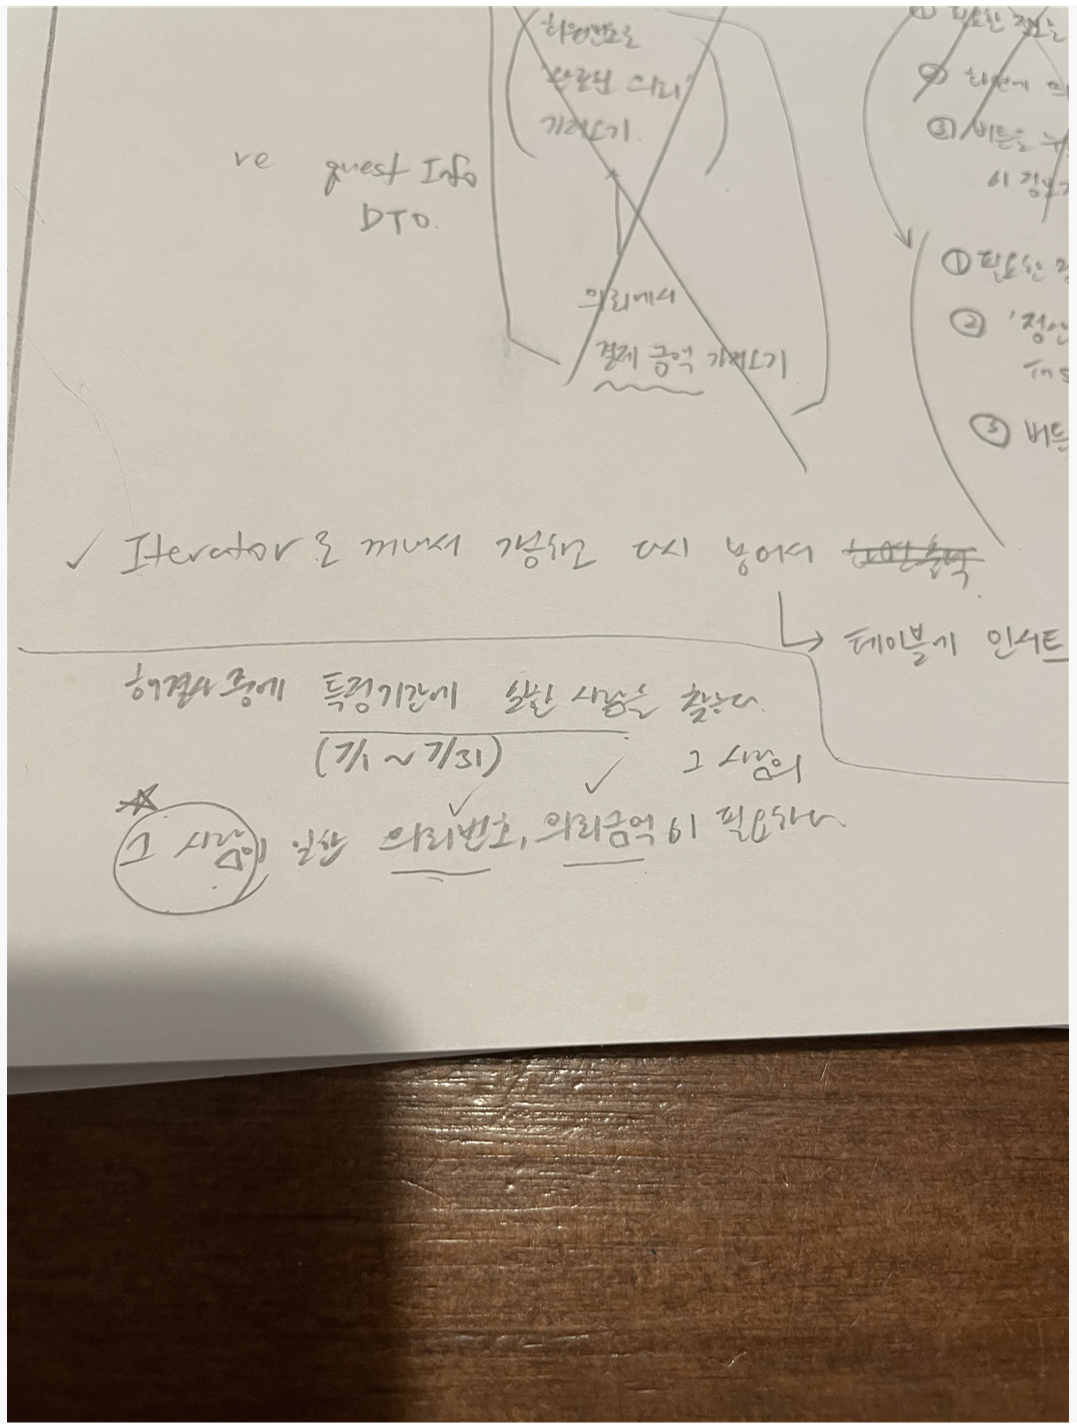 회원번호로
'완료된 의뢰'
가져오기.
re quest Info
DTO.
의뢰에서
결제 금액 가져오기
① 필요한 정보를
② 화면에
③ 버튼을 누
이 정보
① 필요한
②
③ 버튼
✓ Iterator로 꺼내서 갱신하고 다시 넣어서
↳ 테이블에 인서트
해결사 중에 특정기간에 일한 사람을 찾는다.
(7/1 ~ 7/31)
그 사람의
그 사람이 일한 의뢰번호, 의뢰금액이 필요하다.